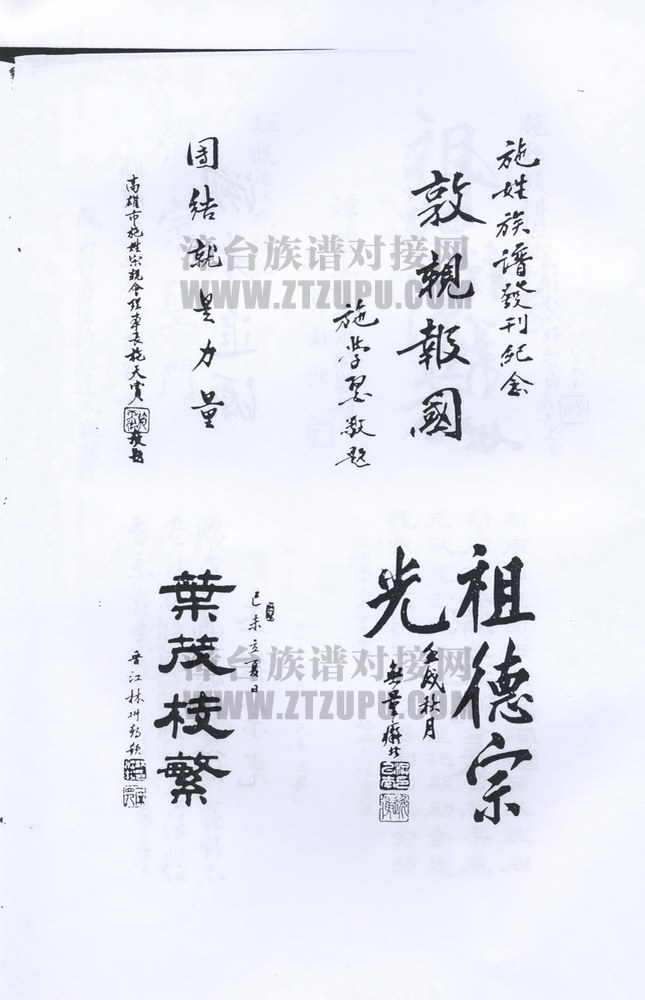 施姓族譜發刊紀念
敦親報國
施學習敬題
團結就是力量
高雄市施姓宗親會理事長施天賞
敬題
祖德宗
光
壬戌秋月
葉茂枝繁
己未立夏日
晋江林
漳台族谱对接网
WWW.ZTZUPU.COM
漳台族谱对接网
WWW.ZTZUPU.COM